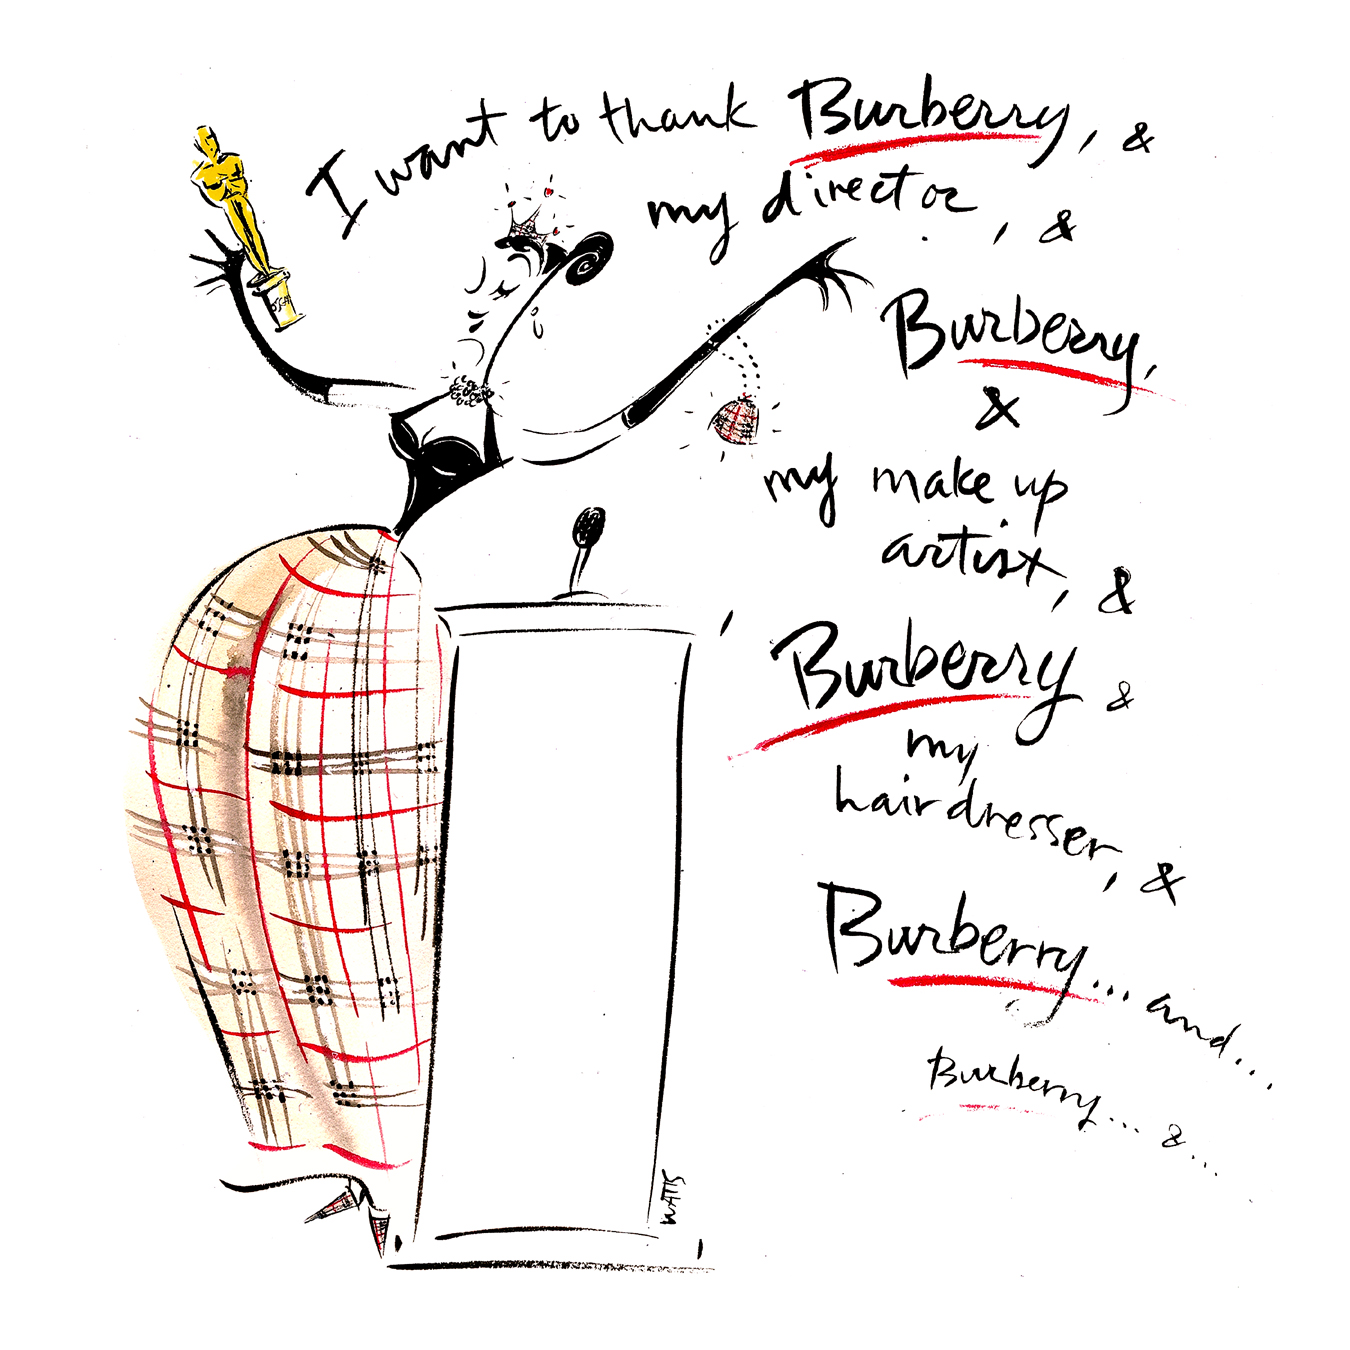 I want to thank Burberry, &
my director, &
Burberry,
&
my make up
artist, &
Burberry &
my
hairdresser, &
Burberry... and...
Burberry... &...
OSCAR
WATTS